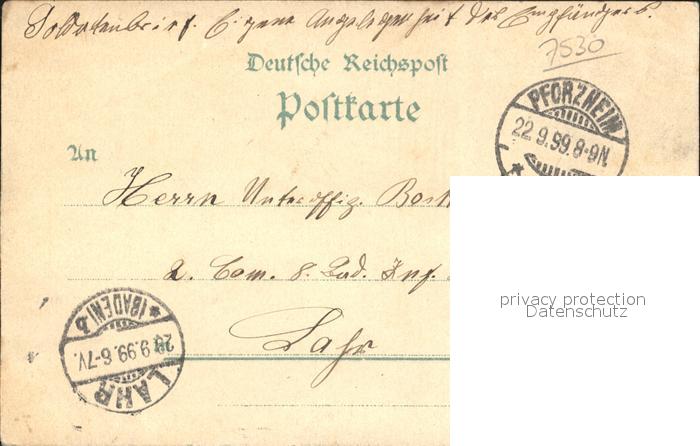 Soldatenbrief. Eigene Angelegenheit des Empfängers.
7530
Deutsche Reichspost
Postkarte
PFORZHEIM
22.9.99.8-9N.
An
Herrn Unteroffiz.
2. Com. 8. Bad. Inf.
privacy protection
Datenschutz
* (BADEN) *
9.99.6-7V.
LAHR
Lahr